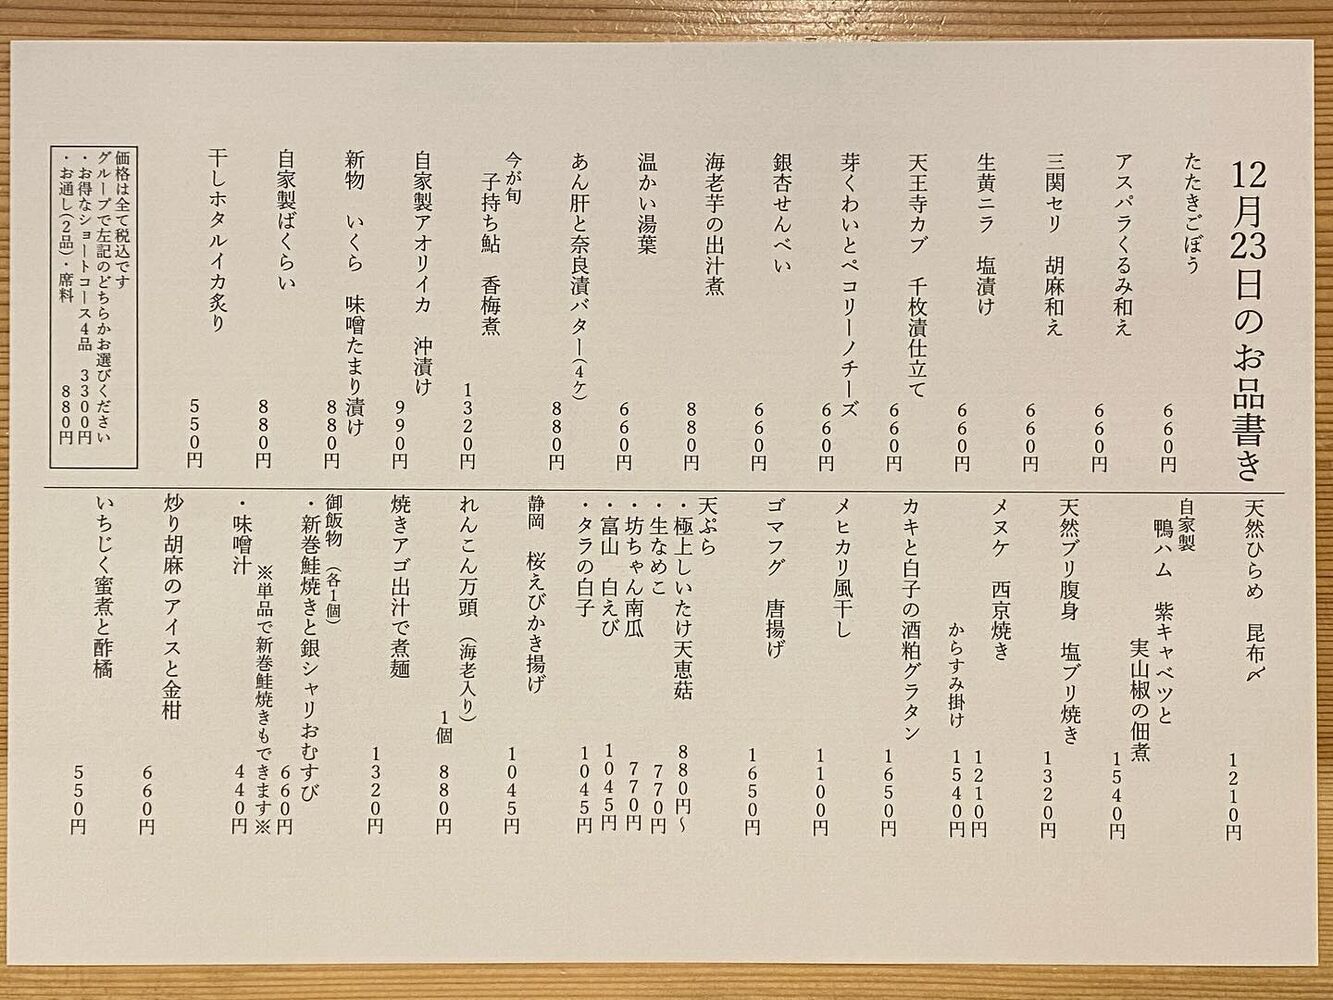 12月23日のお品書き
たたきごぼう
660円
アスパラくるみ和え
660円
三関セリ　胡麻和え
660円
生黄ニラ　塩漬け
660円
天王寺カブ　千枚漬仕立て
660円
芽くわいとペコリーノチーズ
660円
銀杏せんべい
660円
海老芋の出汁煮
880円
温かい湯葉
660円
あん肝と奈良漬バター(4ケ)
880円
今が旬
子持ち鮎　香梅煮
1320円
自家製アオリイカ　沖漬け
990円
新物　いくら　味噌たまり漬け
880円
自家製ばくらい
880円
干しホタルイカ炙り
550円
価格は全て税込です
グループで左記のどちらかお選びください
・お得なショートコース4品　3300円
・お通し(2品)・席料　880円
天然ひらめ　昆布〆
1210円
自家製
鴨ハム　紫キャベツと
実山椒の佃煮
1540円
天然ブリ腹身　塩ブリ焼き
1320円
メヌケ　西京焼き
1210円
からすみ掛け　1540円
カキと白子の酒粕グラタン
1650円
メヒカリ風干し
1100円
ゴマフグ　唐揚げ
1650円
天ぷら
・極上しいたけ天恵菇　880円～
・生なめこ　770円
・坊ちゃん南瓜　770円
・富山　白えび　1045円
・タラの白子　1045円
静岡　桜えびかき揚げ
1045円
れんこん万頭　(海老入り)
1個　880円
焼きアゴ出汁で煮麺
1320円
御飯物　(各1個)
・新巻鮭焼きと銀シャリおむすび
660円
※単品で新巻鮭焼きもできます※
・味噌汁　440円
炒り胡麻のアイスと金柑
660円
いちじく蜜煮と酢橘
550円